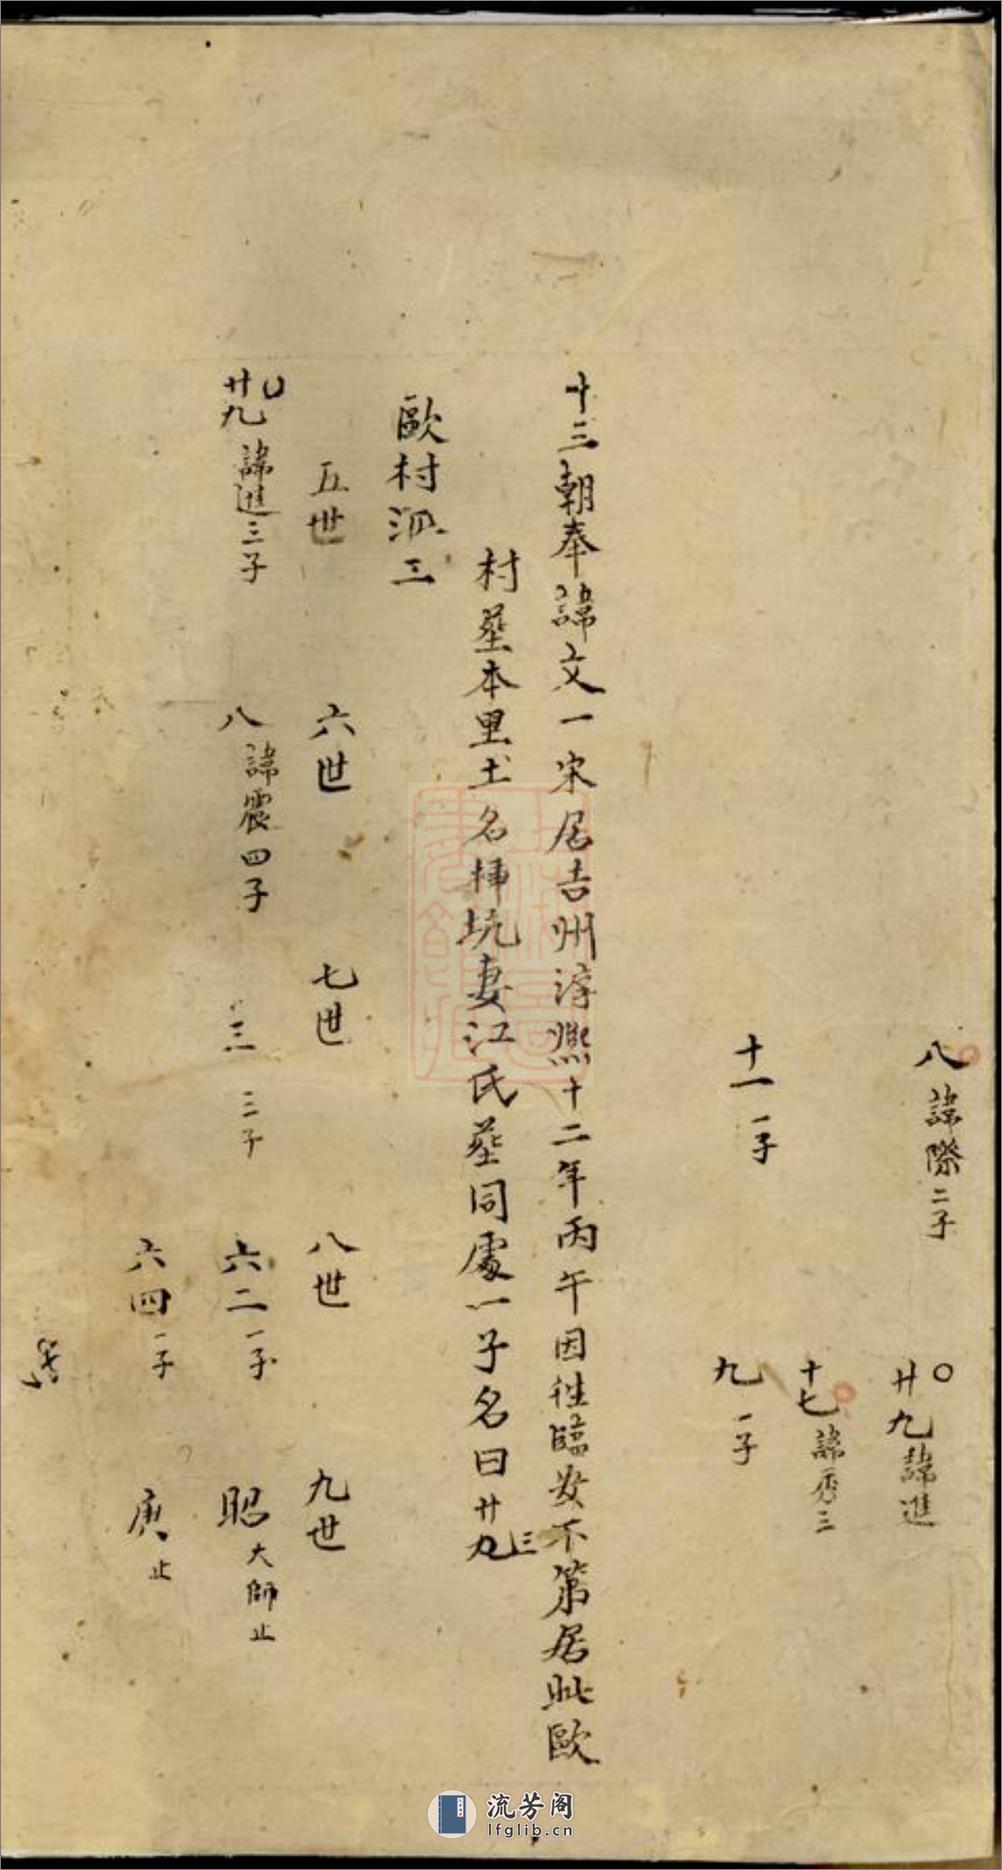 八 諱際二子
○ 廿九 諱進
十七 諱秀三
十一 一子
九 一子
十三朝奉諱文一宋居吉州淳熙十二年丙午因往臨安不第居此歐
村葬本里土名 坑妻江氏葬同處一子名曰廿九三
歐村派三
五世 六世 七世 八世 九世
廿九 諱進三子
八 諱震四子
三 三子
六二 一子
昭 大師止
六四 一子
庚 止
流芳阁
lfglib.cn